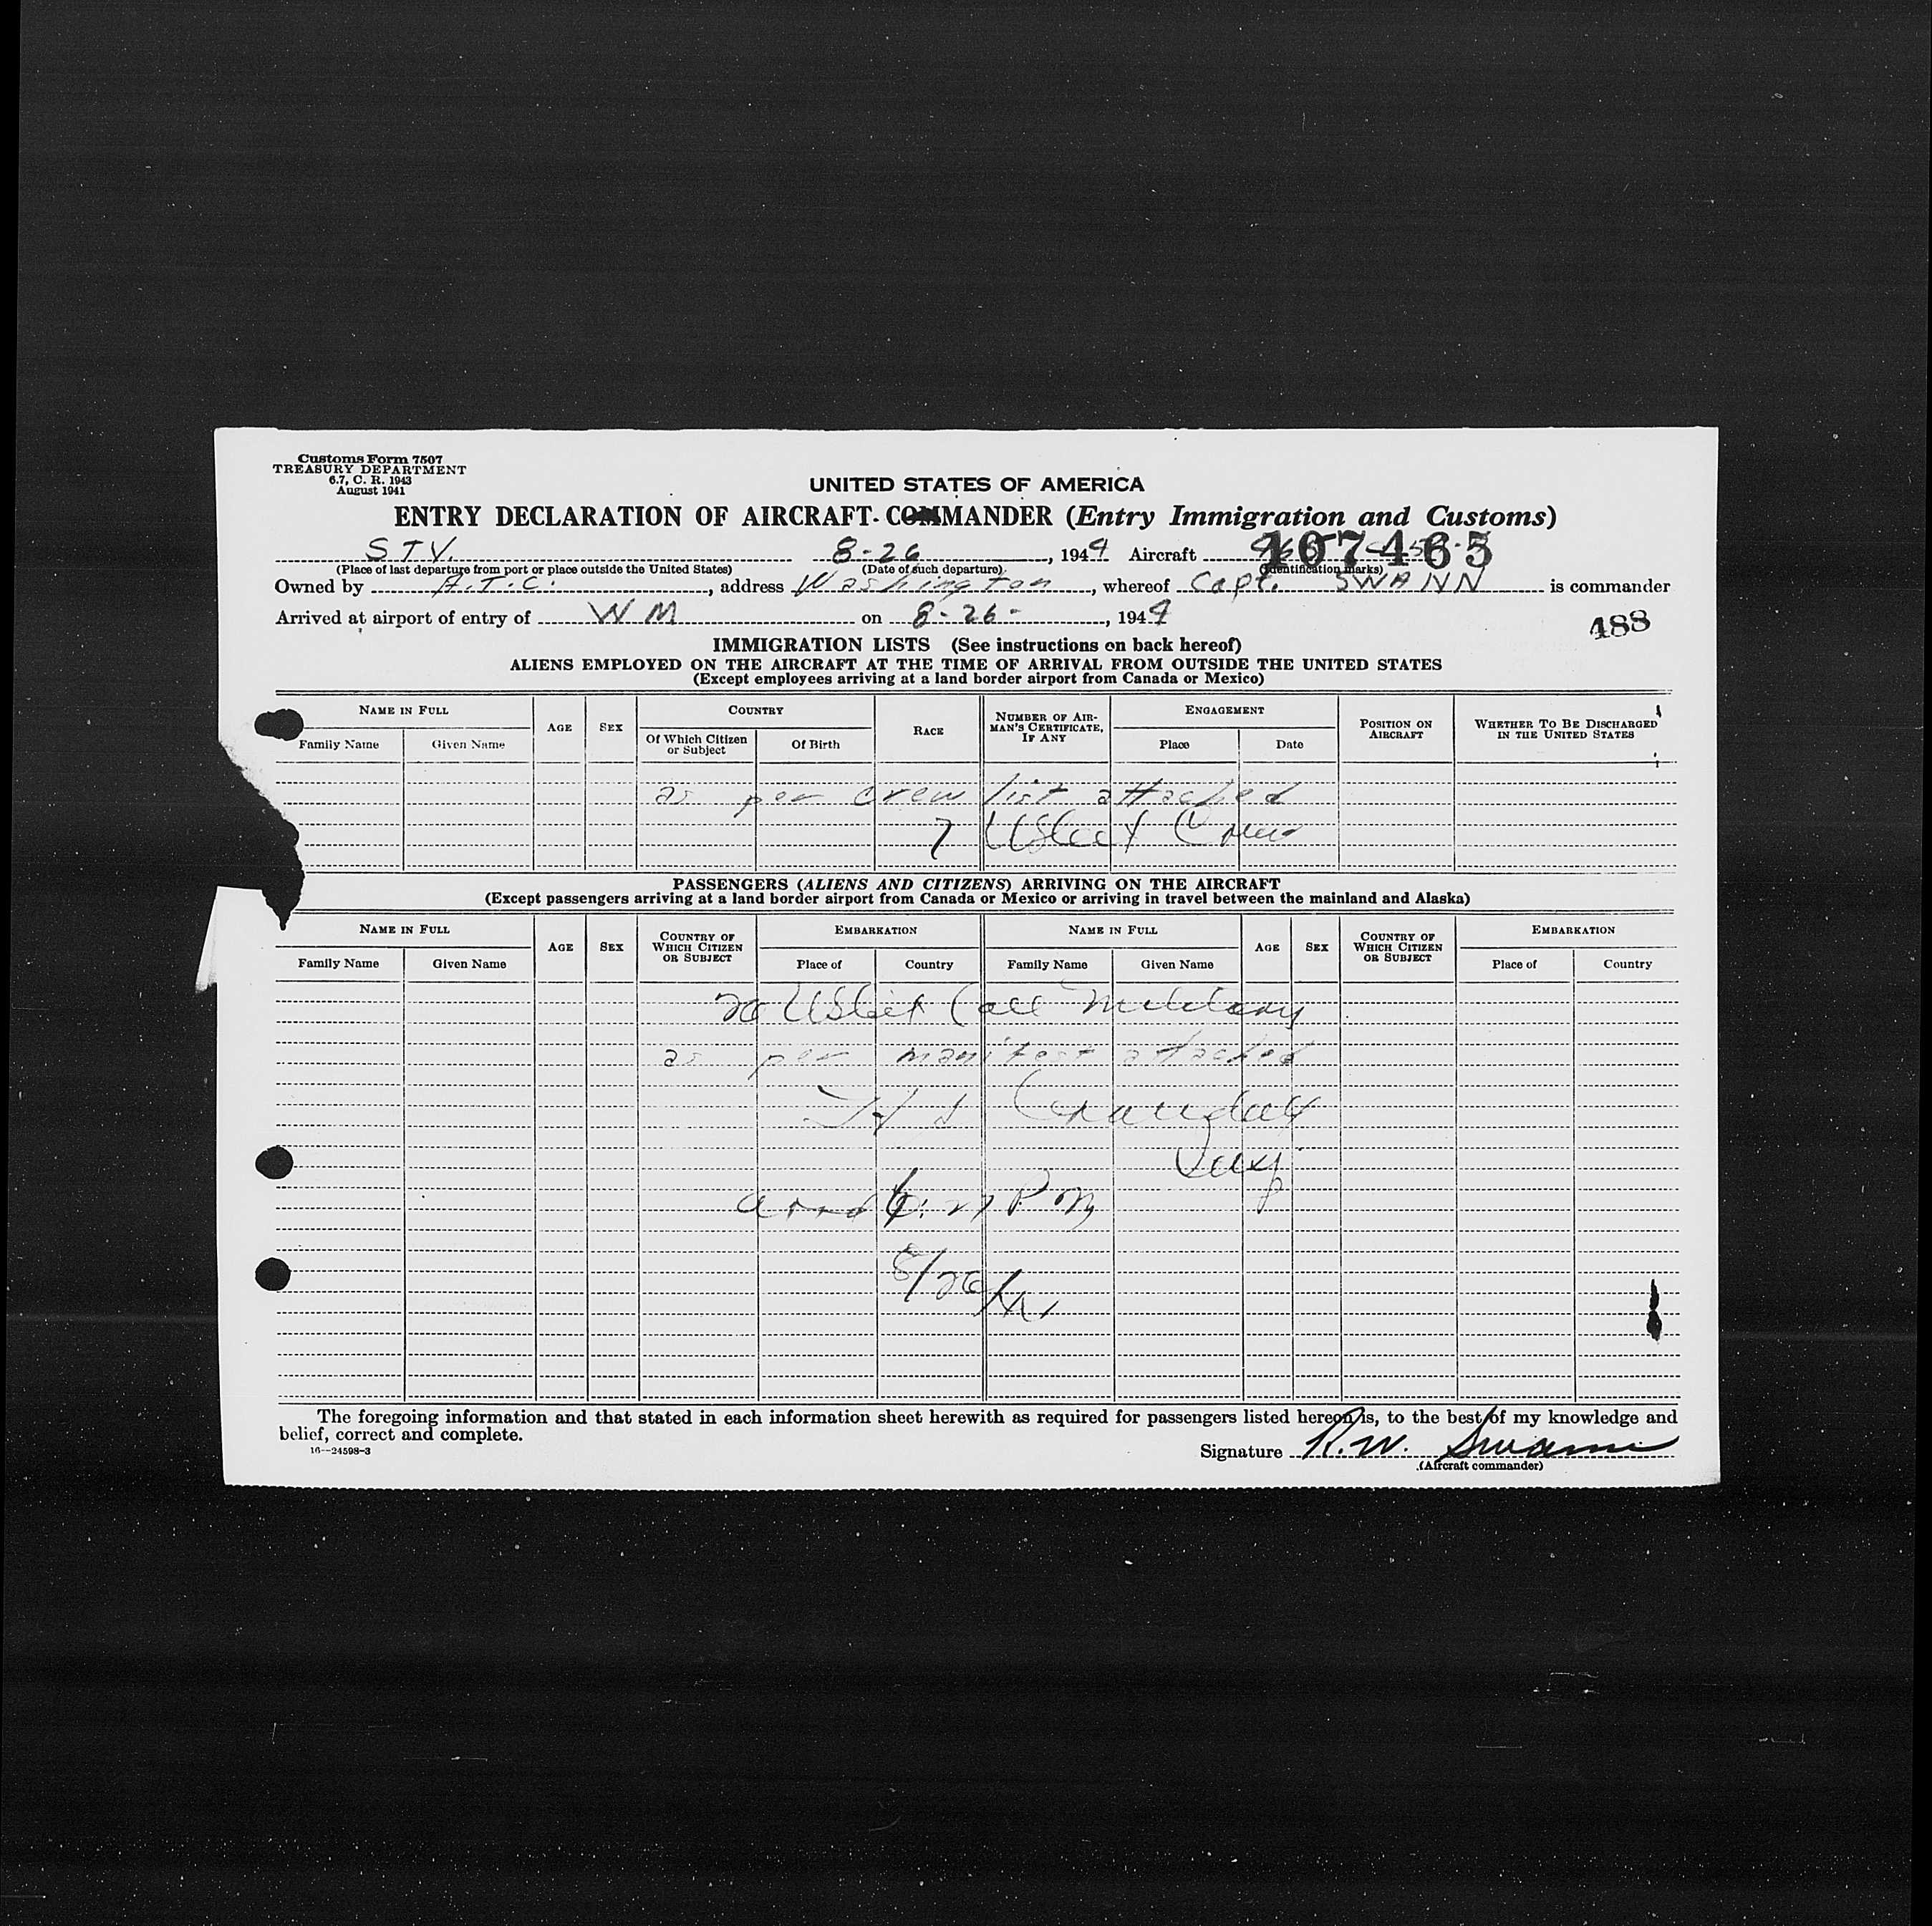 Customs Form 7507
TREASURY DEPARTMENT
6.7, C. R. 1943
August 1941
UNITED STATES OF AMERICA
ENTRY DECLARATION OF AIRCRAFT COMMANDER (Entry Immigration and Customs)
STV. 8-26, 1944 Aircraft 107465
(Place of last departure from port or place outside the United States) (Date of such departure) (Identification marks)
Owned by A.T.C., address Washington, whereof Capt. SWANN is commander
Arrived at airport of entry of WM on 8-26-, 1944
488
IMMIGRATION LISTS (See instructions on back hereof)
ALIENS EMPLOYED ON THE AIRCRAFT AT THE TIME OF ARRIVAL FROM OUTSIDE THE UNITED STATES
(Except employees arriving at a land border airport from Canada or Mexico)
NAME IN FULL AGE SEX COUNTRY RACE NUMBER OF AIRMAN'S CERTIFICATE, IF ANY ENGAGEMENT POSITION ON AIRCRAFT WHETHER TO BE DISCHARGED IN THE UNITED STATES
Family Name Given Name Of Which Citizen or Subject Of Birth Place Date
as per crew list attached
7 UScit Crew
PASSENGERS (ALIENS AND CITIZENS) ARRIVING ON THE AIRCRAFT
(Except passengers arriving at a land border airport from Canada or Mexico or arriving in travel between the mainland and Alaska)
NAME IN FULL AGE SEX COUNTRY OF WHICH CITIZEN OR SUBJECT EMBARKATION NAME IN FULL AGE SEX COUNTRY OF WHICH CITIZEN OR SUBJECT EMBARKATION
Family Name Given Name Place of Country Family Name Given Name Place of Country
20 UScit (all Military
as per manifest attached
Crandall
Insp
P M
8/26/44
The foregoing information and that stated in each information sheet herewith as required for passengers listed hereon is, to the best of my knowledge and
belief, correct and complete.
16—24598-3
Signature R.W. Swann
(Aircraft commander)